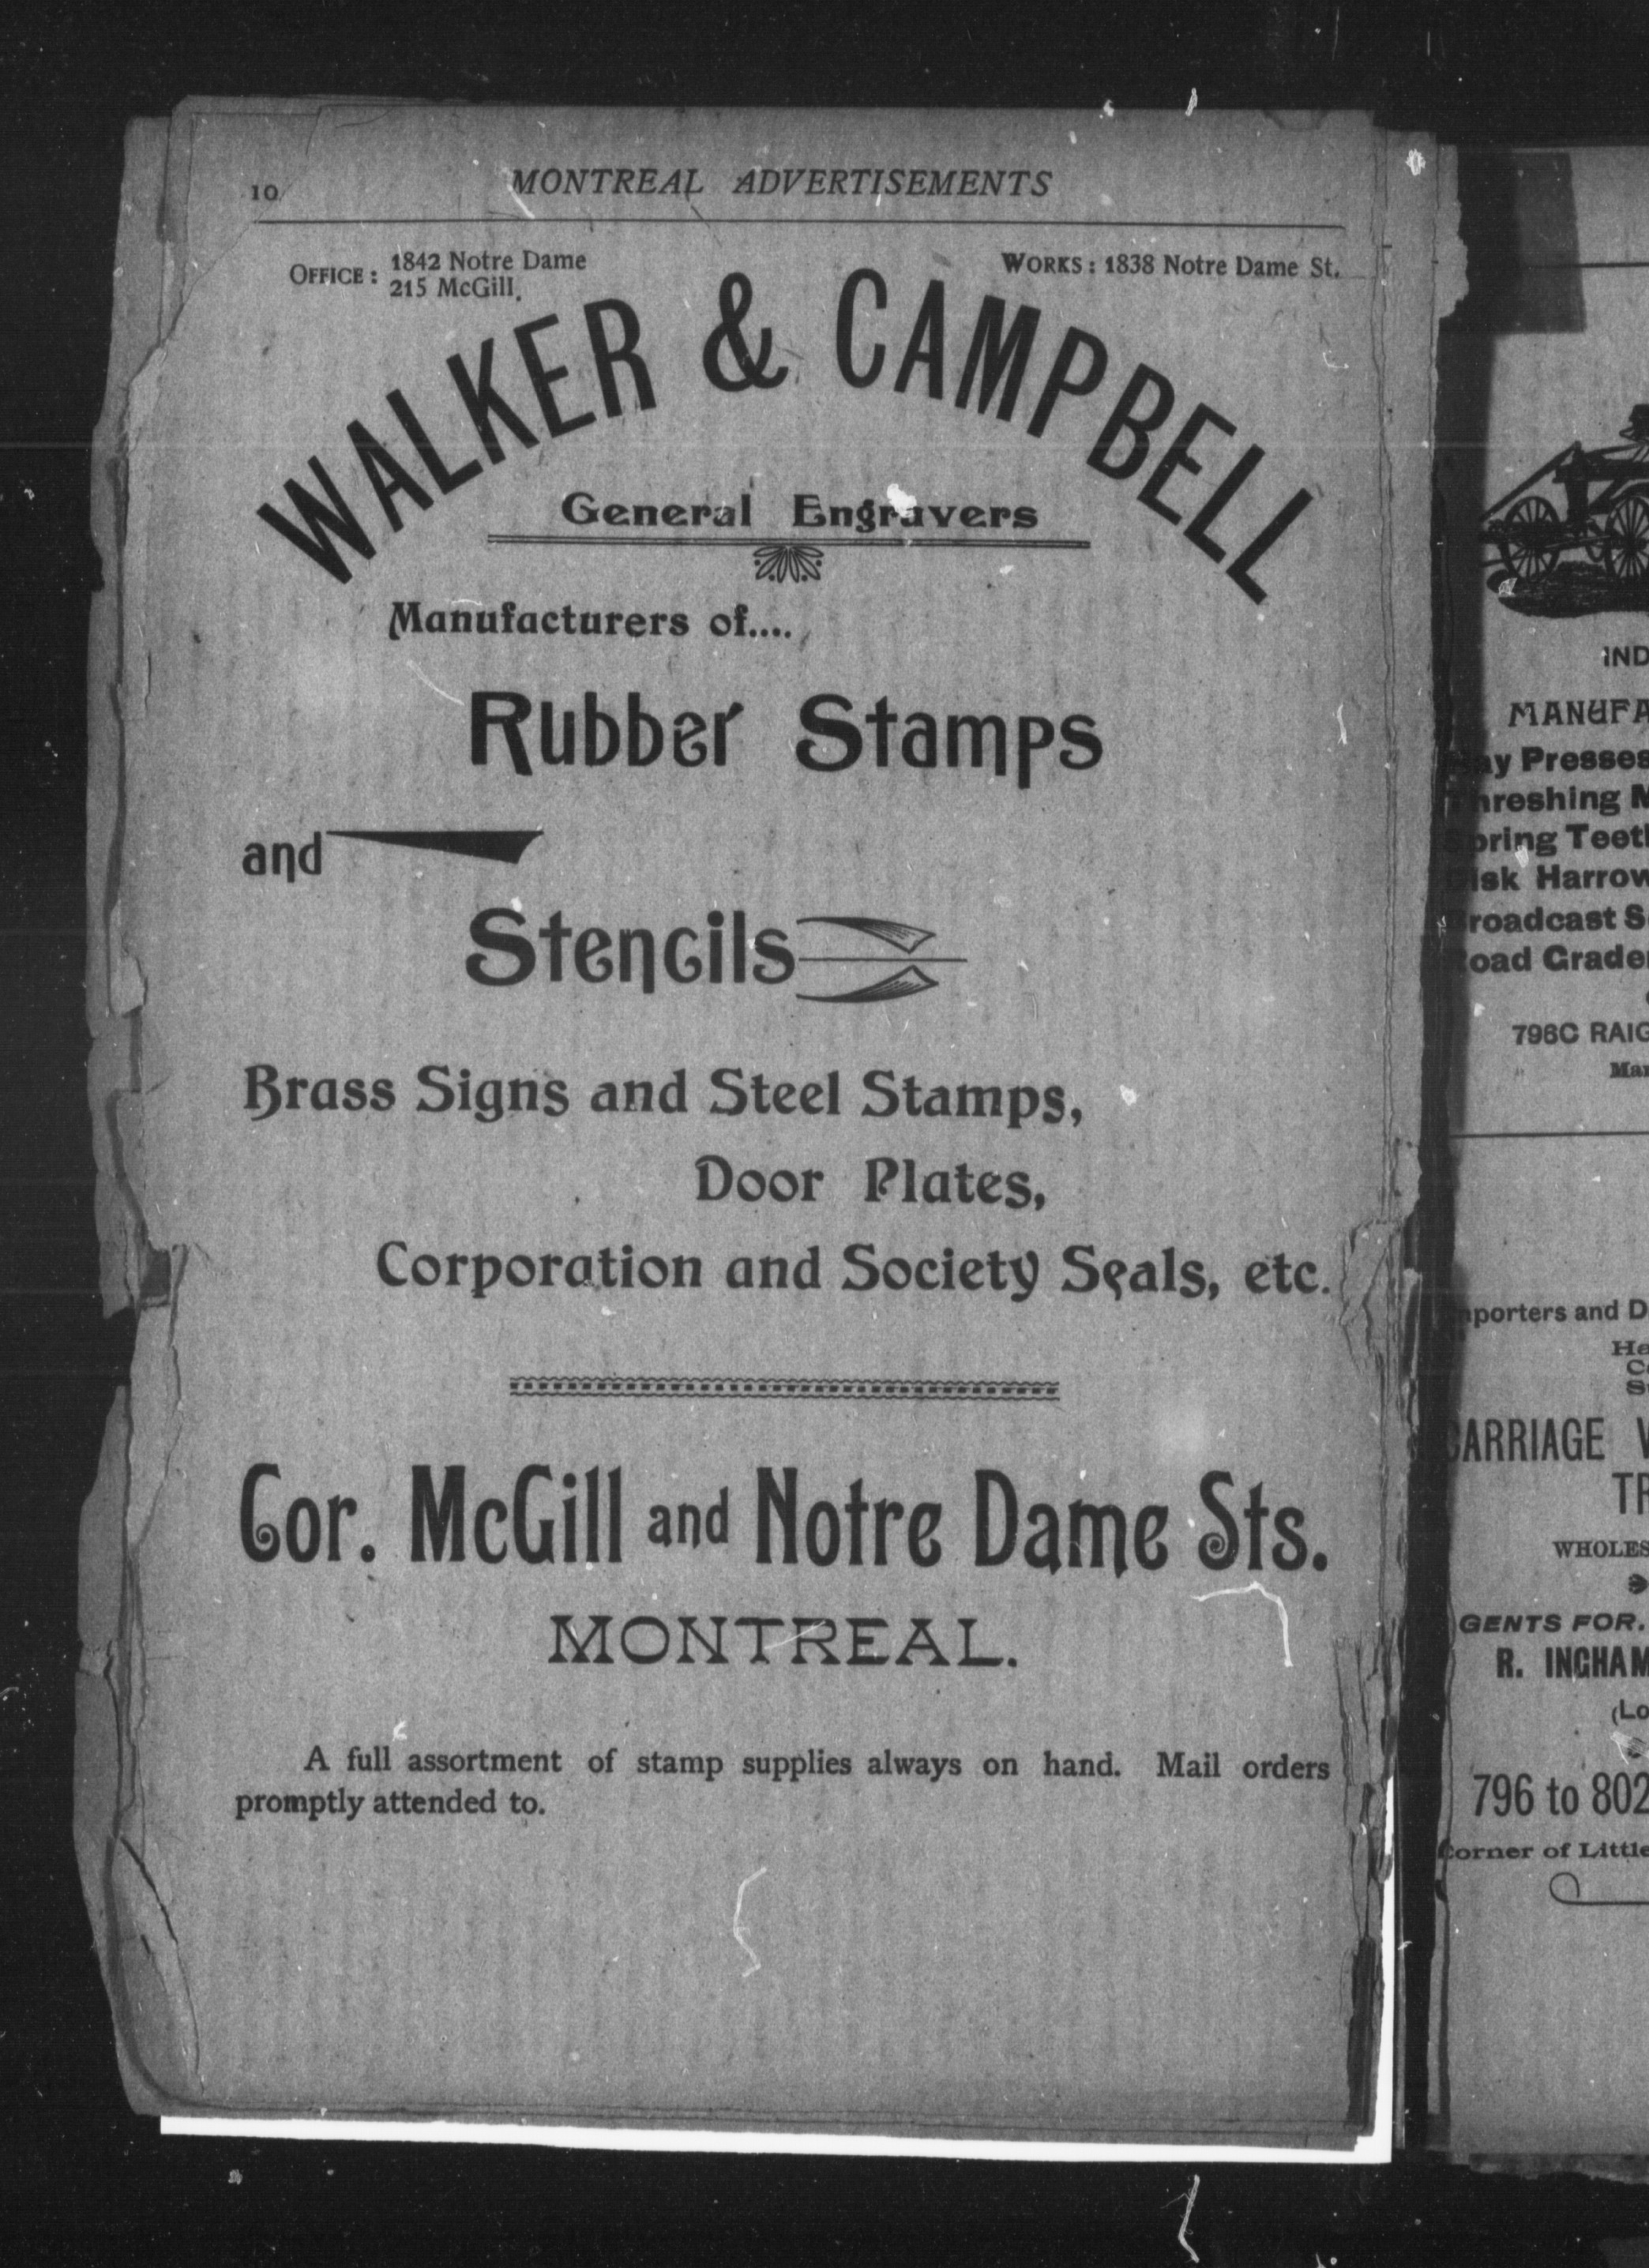 10
MONTREAL ADVERTISEMENTS
OFFICE: 1842 Notre Dame
215 McGill.
WORKS: 1838 Notre Dame St.
WALKER & CAMPBELL
General Engravers
Manufacturers of....
Rubber Stamps
and
Stencils
Brass Signs and Steel Stamps,
Door Plates,
Corporation and Society Seals, etc.
Cor. McGill and Notre Dame Sts.
MONTREAL.
A full assortment of stamp supplies always on hand. Mail orders
promptly attended to.
IND
MANUFA
ay Presses
hreshing M
pring Teet
isk Harrow
roadcast S
oad Grade
796C RAIG
Man
mporters and D
He
TR
ARRIAGE
WHOLES
GENTS FOR.
R. INGHAM
(Lo
796 to 802
Corner of Little